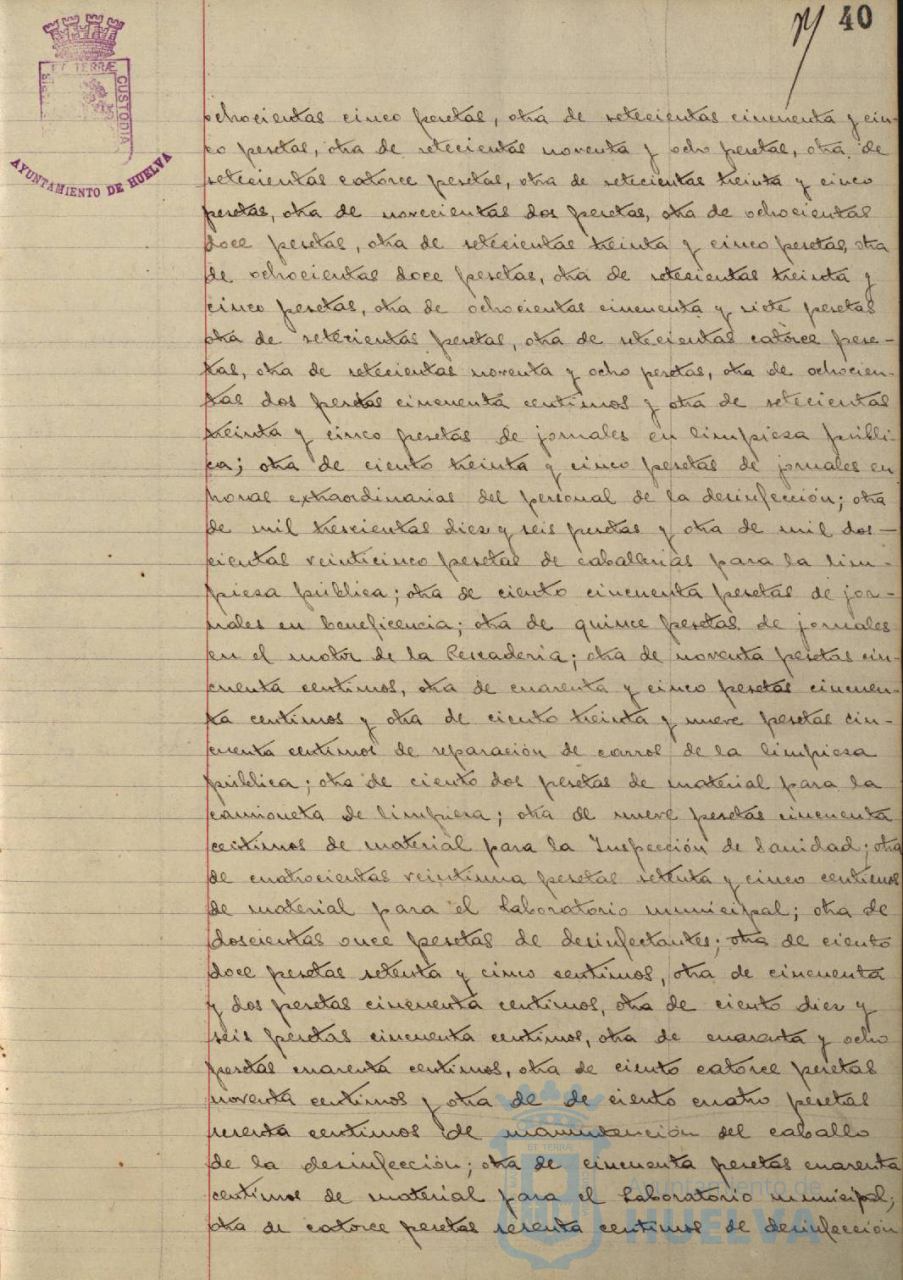 40
ET TERRÆ
CUSTODIA
AYUNTAMIENTO DE HUELVA
ochocientas cinco pesetas, otra de setecientas cincuenta y cin-
co pesetas, otra de setecientas noventa y ocho pesetas, otra de
setecientas catorce pesetas, otra de setecientas treinta y cinco
pesetas, otra de novecientas dos pesetas, otra de ochocientas
doce pesetas, otra de setecientas treinta y cinco pesetas, otra
de ochocientas doce pesetas, otra de setecientas treinta y
cinco pesetas, otra de ochocientas cincuenta y siete pesetas
otra de setecientas pesetas, otra de setecientas catorce pese-
tas, otra de setecientas noventa y ocho pesetas, otra de ochocien-
tas dos pesetas cincuenta centimos y otra de setecientas
treinta y cinco pesetas de jornales en limpiesa públi-
ca; otra de ciento treinta y cinco pesetas de jornales en
horas extraordinarias del personal de la desinfección; otra
de mil trescientas diez y seis pesetas y otra de mil dos-
cientas veinticinco pesetas de caballerias para la lim-
piesa pública; otra de ciento cincuenta pesetas de jor-
nales en beneficencia; otra de quince pesetas de jornales
en el motor de la Pescaderia; otra de noventa pesetas cin-
cuenta centimos, otra de cuarenta y cinco pesetas cincuen-
ta centimos y otra de ciento treinta y nueve pesetas cin-
cuenta centimos de reparación de carros de la limpiesa
pública; otra de ciento dos pesetas de material para la
camioneta de limpiesa; otra de nueve pesetas cincuenta
centimos de material para la Inspección de Sanidad; otra
de cuatrocientas veintiuna pesetas setenta y cinco centimos
de material para el Laboratorio municipal; otra de
doscientas once pesetas de desinfectantes; otra de ciento
doce pesetas setenta y cinco centimos, otra de cincuenta
y dos pesetas cincuenta centimos, otra de ciento diez y
seis pesetas cincuenta centimos, otra de cuarenta y ocho
pesetas cuarenta centimos, otra de ciento catorce pesetas
noventa centimos y otra de de ciento cuatro pesetas
sesenta centimos de manutención del caballo
de la desinfección; otra de cincuenta pesetas cuarenta
centimos de material para el Laboratorio municipal;
otra de catorce pesetas sesenta centimos de desinfección
Ayuntamiento de
HUELVA